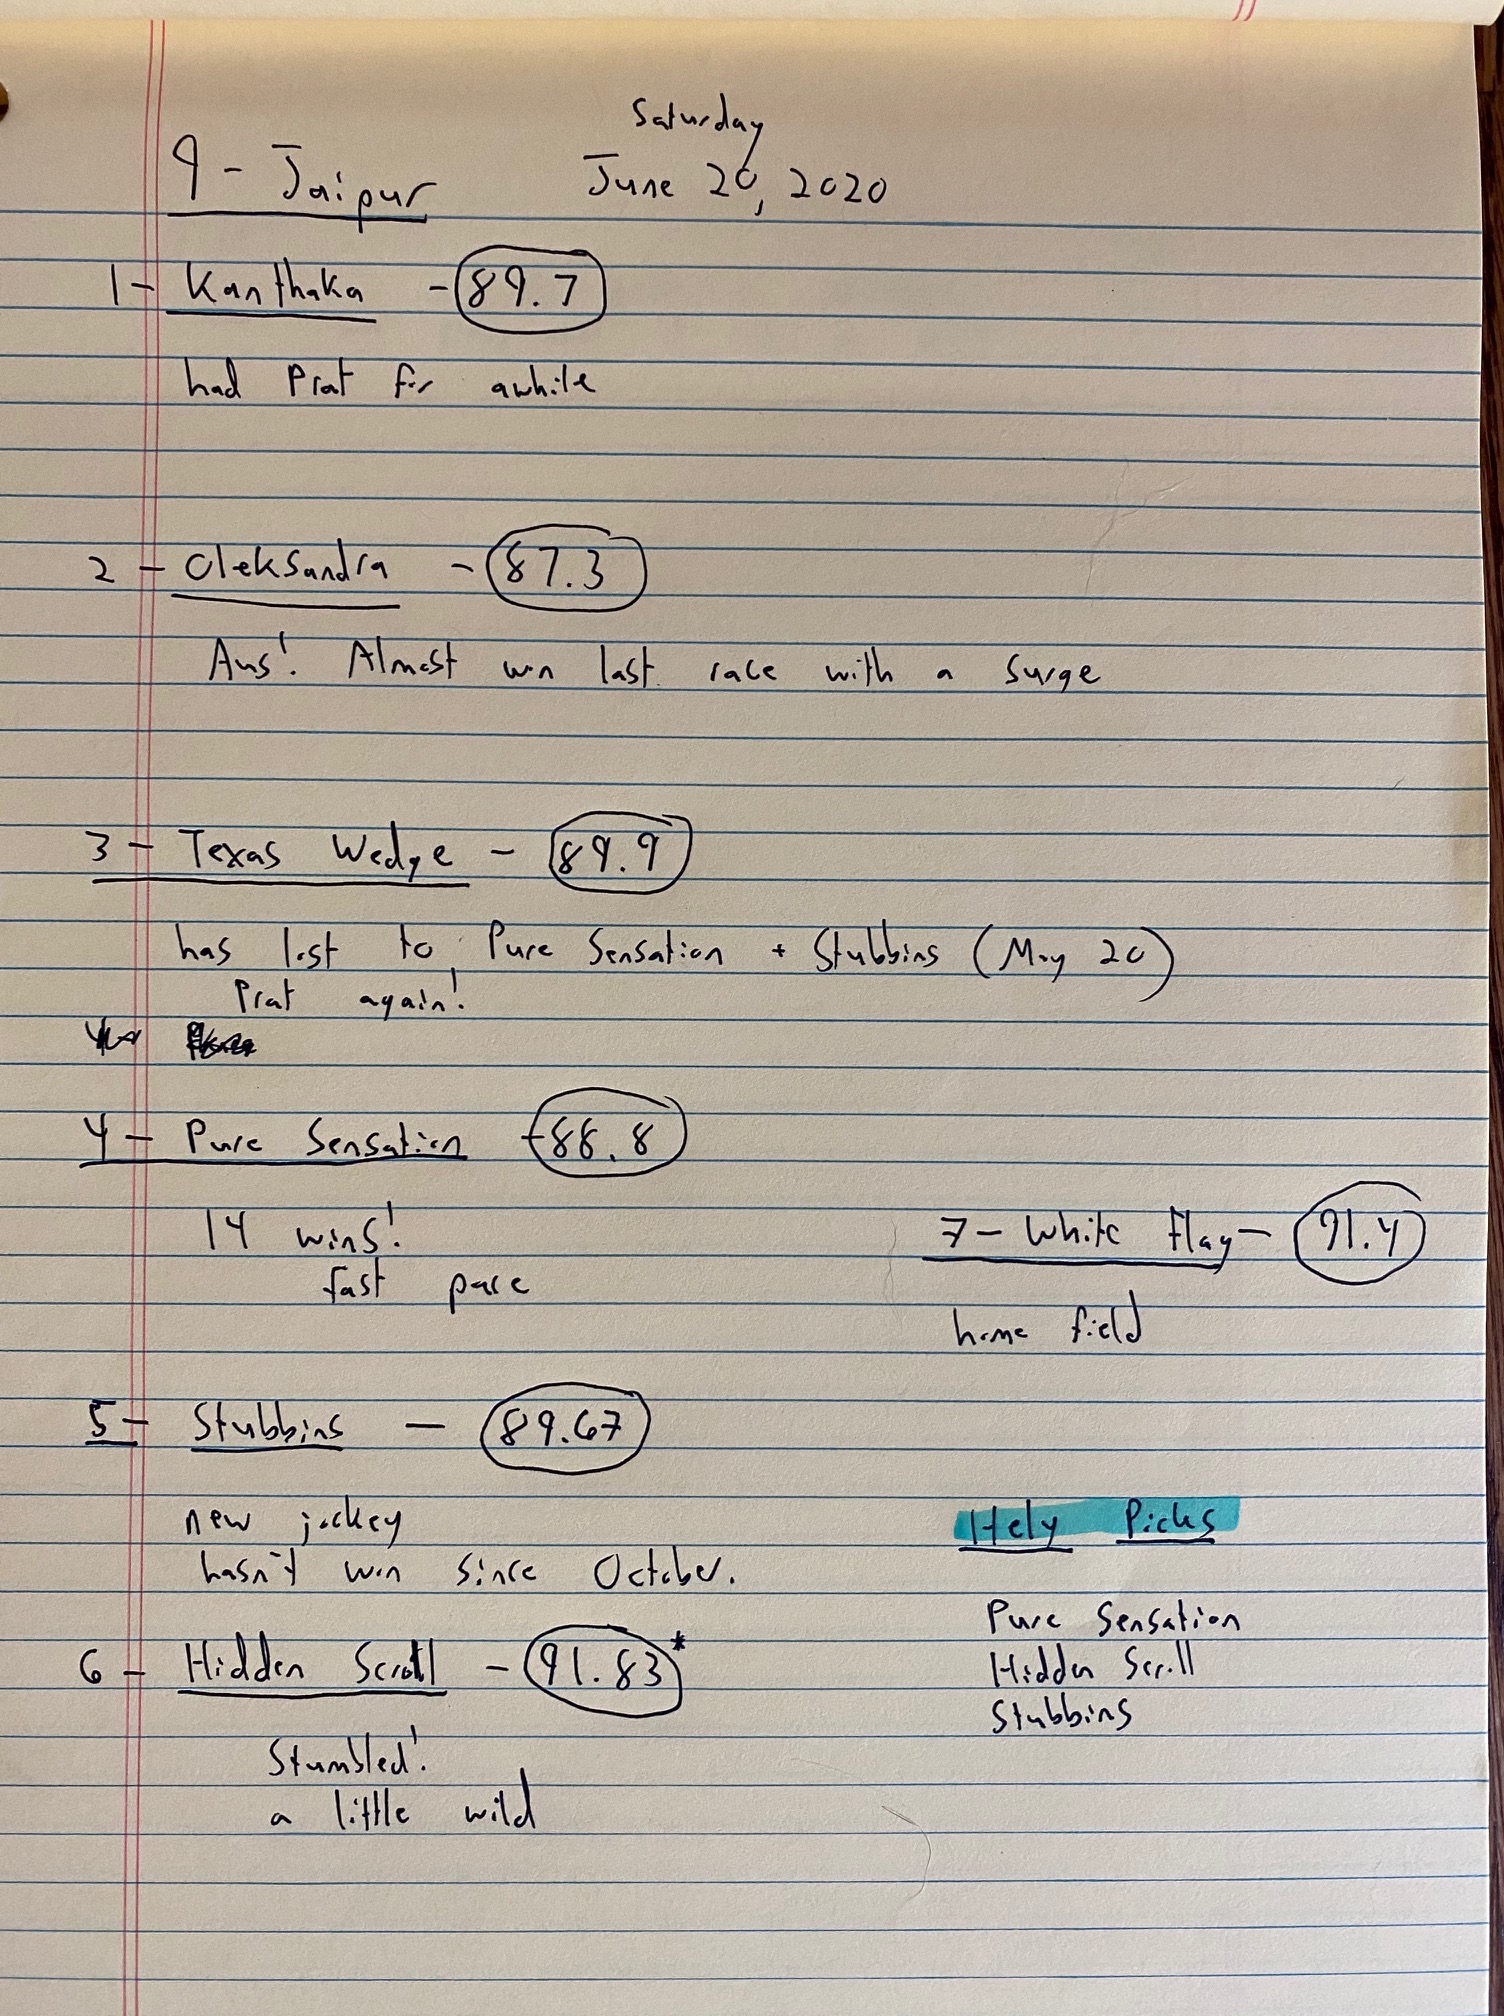 Saturday
9 - Jaipur June 20, 2020
1 - Kanthaka - 89.7
had Prat for awhile
2 - Oleksandra - 87.3
Aus! Almost won last race with a surge
3 - Texas Wedge - 89.9
has lost to Pure Sensation + Stubbins (May 20)
Prat again!
4 - Pure Sensation - 88.8
14 wins!
fast pace
7 - White Flag - 91.4
home field
5 - Stubbins - 89.67
new jockey
hasn't won since October.
6 - Hidden Scroll - 91.83*
Stumbled!
a little wild
Hely Picks
Pure Sensation
Hidden Scroll
Stubbins